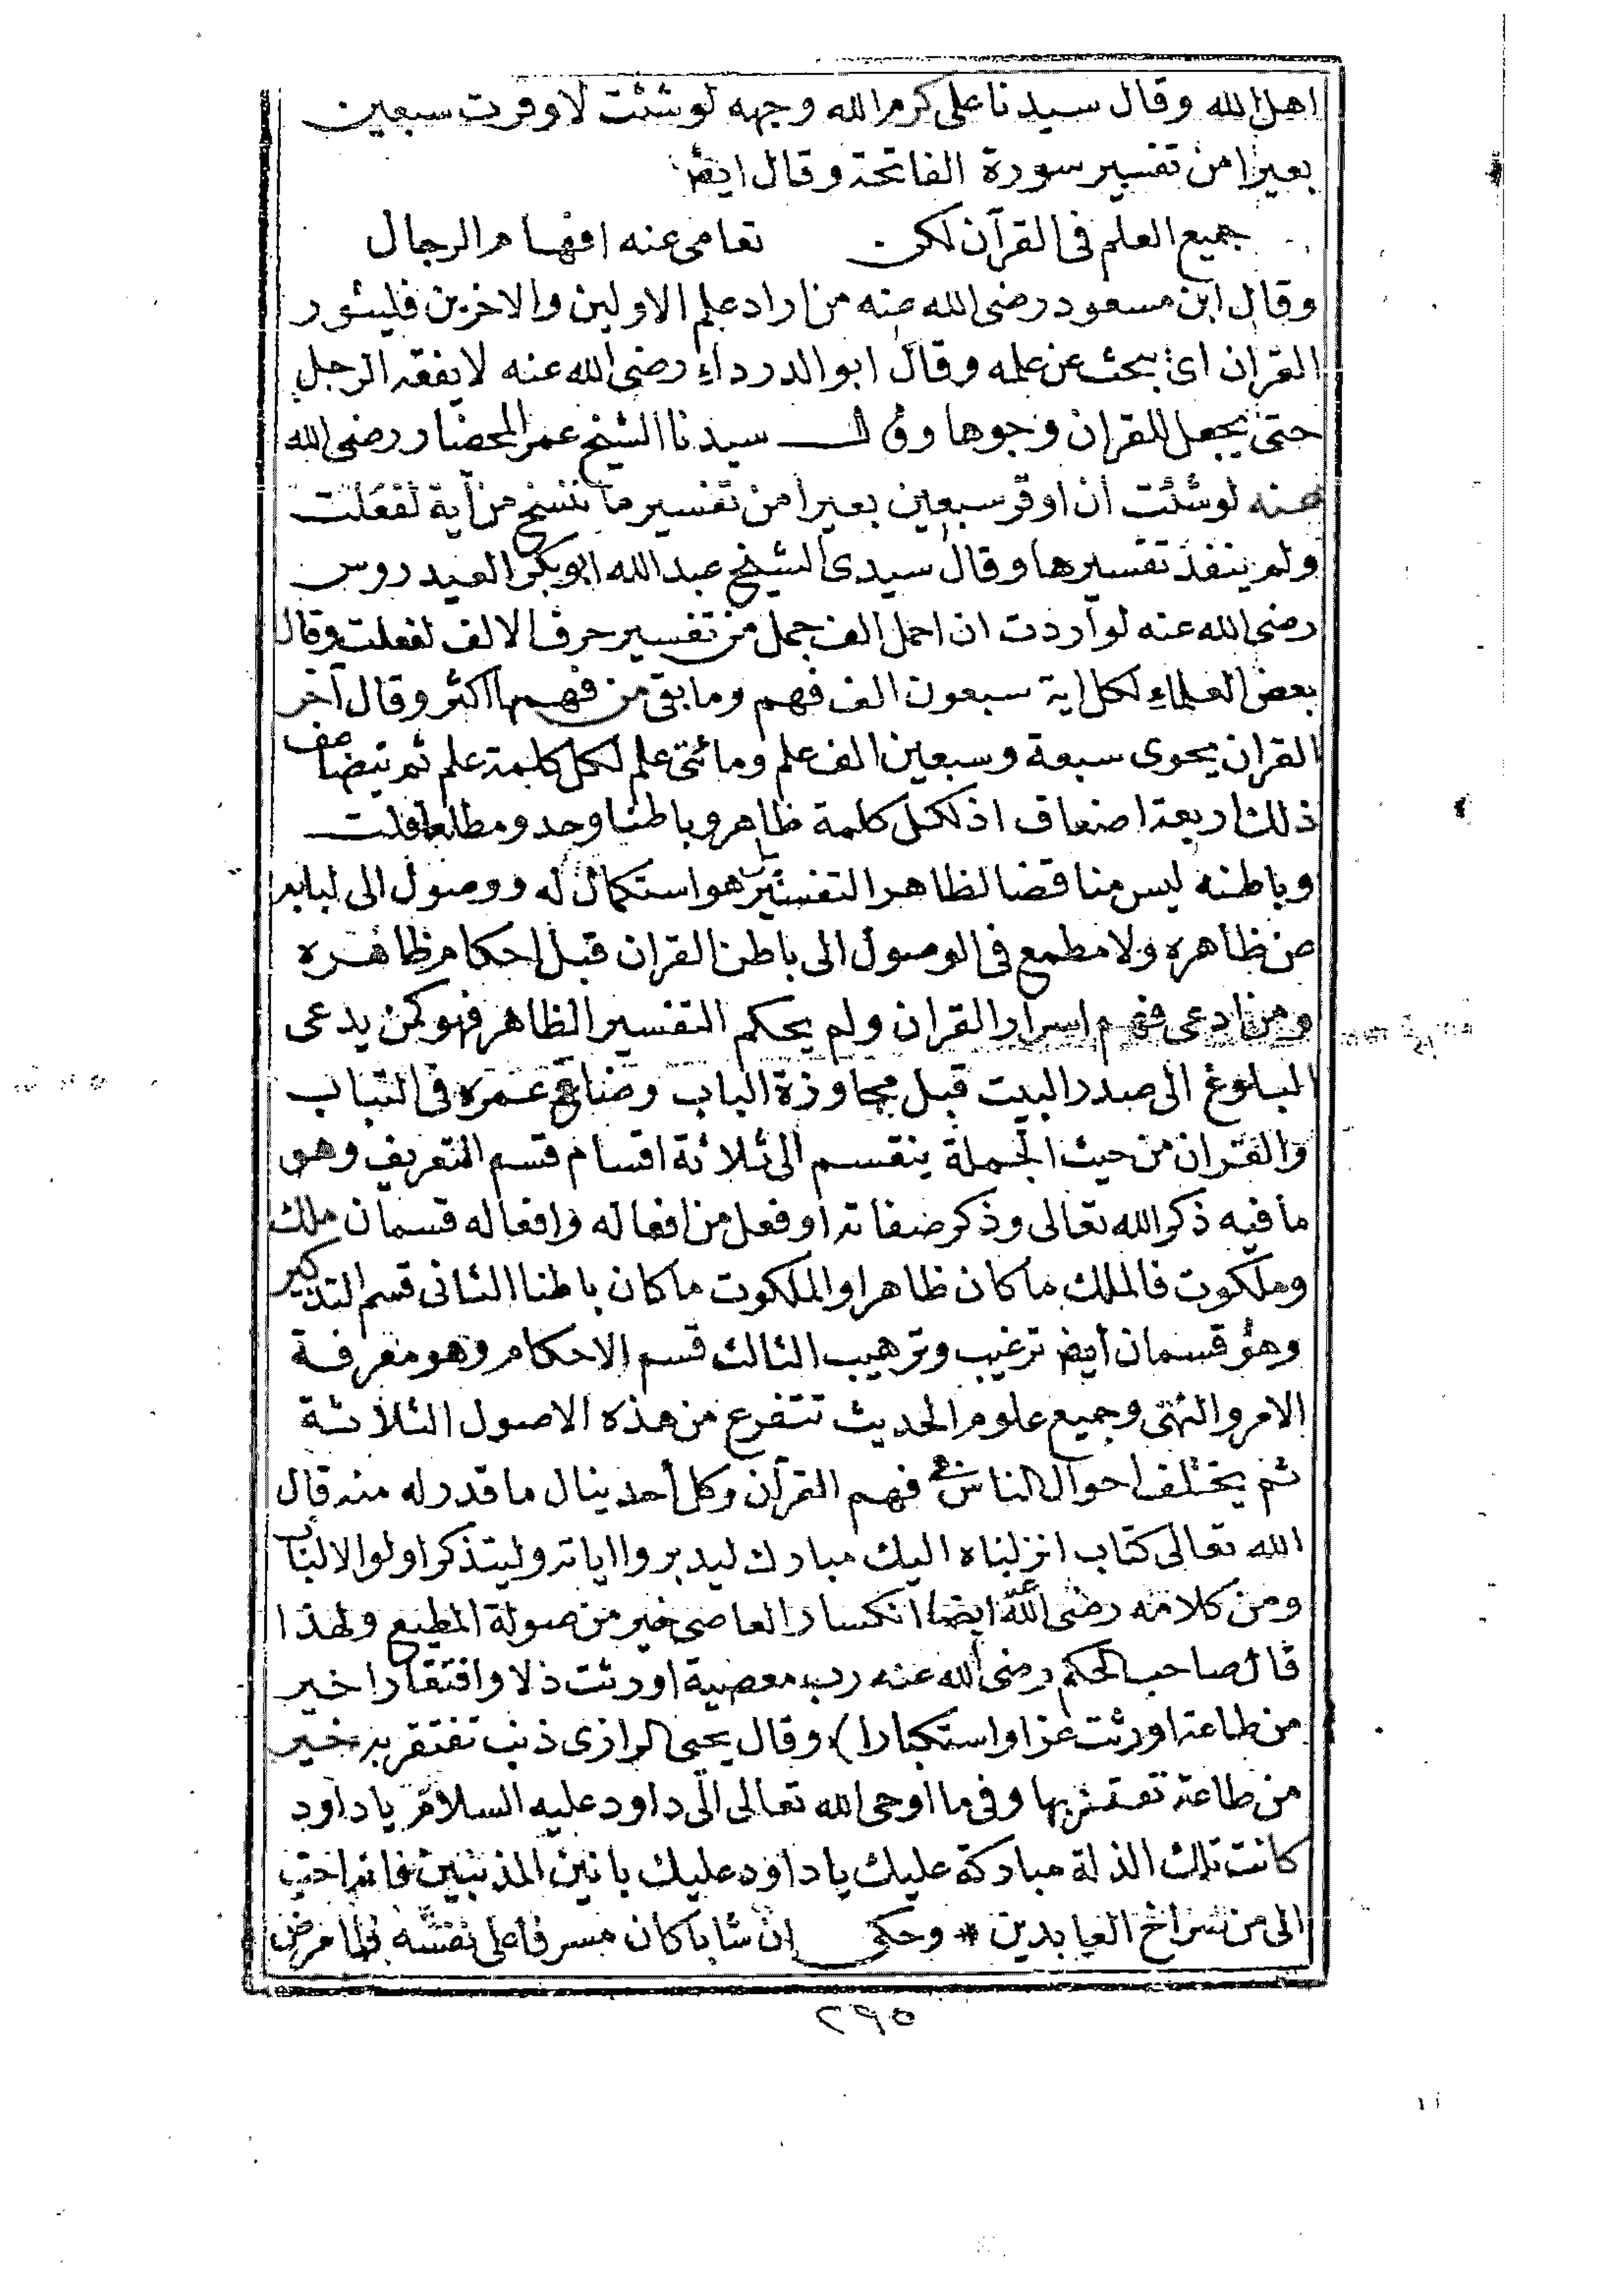 اهل الله وقال سيدنا على كرم الله وجهه لو شئت لاوقرت سبعين
بعيرا من تفسير سورة الفاتحة وقال ايض
جميع العلم فى القرآن لكن تعامى عنه افهام الرجال
وقال ابن مسعود رضى الله عنه من اراد علم الاولين والاخرين فليثور
القران اى يبحث عن علمه وقال ابو الدرداء رضى الله عنه لا يفقه الرجل
حتى يجعل للقران وجوها وقال سيدنا الشيخ عمر المحضار رضى الله
عنه لو شئت ان اوقر سبعين بعيرا من تفسير ما ننسخ من آية لفعلت
ولم ينفذ تفسيرها وقال سيدى الشيخ عبد الله ابو بكر العيدروس
رضى الله عنه لو اردت ان احمل الف جمل من تفسير حرف الالف لفعلت وقال
بعض العلماء لكل اية سبعون الف فهم وما بقى من فهمها اكثر وقال آخر
القران يحوى سبعة وسبعين الف علم ومائتى علم لكل كلمة علم ثم تتضاعف
ذلك اربعة اضعاف اذ لكل كلمة ظاهر وباطنا وحد ومطلعا قلت
وباطنه ليس مناقضا لظاهر التفسير بل هو استكمال له ووصول الى لبابه
من ظاهره ولا مطمع فى الوصول الى باطن القران قبل احكام ظاهره
ومن ادعى فهم اسرار القران ولم يحكم التفسير الظاهر فهو كمن يدعى
البلوغ الى صدر البيت قبل مجاوزة الباب وضاع عمره فى التباب
والقران من حيث الجملة ينقسم الى ثلاثة اقسام قسم التعريف وهو
ما فيه ذكر الله تعالى وذكر صفاته او فعل من افعاله وافعاله قسمان ملك
وملكوت فالملك ما كان ظاهرا والملكوت ما كان باطنا الثانى قسم التذكير
وهو قسمان أيض ترغيب وترهيب الثالث قسم الاحكام وهو معرفة
الامر والنهى وجميع علوم الحديث تتفرع من هذه الاصول الثلاثة
ثم يختلف احوال الناس فى فهم القرآن وكل أحد ينال ما قدر له منه قال
الله تعالى كتاب انزلناه اليك مبارك ليدبروا اياته وليتذكر اولوا الالباب
ومن كلامه رضى الله ايضا انكسار العاصى خير من صولة المطيع ولهذا
قال صاحب الحكم رضى الله عنه رب معصية اورثت ذلا وافتقارا خير
من طاعة اورثت عزا واستكبارا) وقال يحيى الرازى ذنب تفتقر به خير
من طاعة تفتخر بها وفى ما اوحى الله تعالى الى داود عليه السلام يا داود
كانت تلك الذلة مباركة عليك يا داود عليك بانين المذنبين فانه احب
الى من صراخ العابدين * وحكى ان شابا كان مسرفا على نفسه فلما مرض
٢٩٥